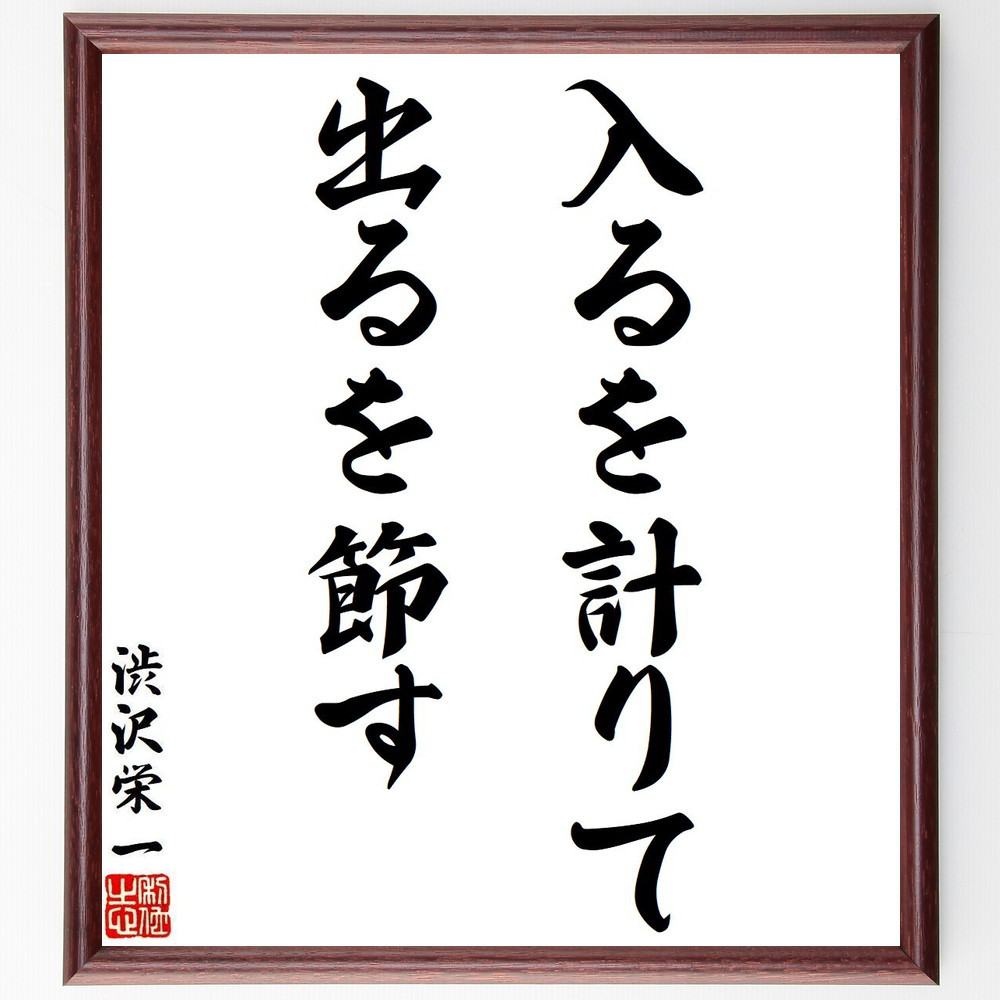 入るを計りて
出るを節す
渋沢栄一